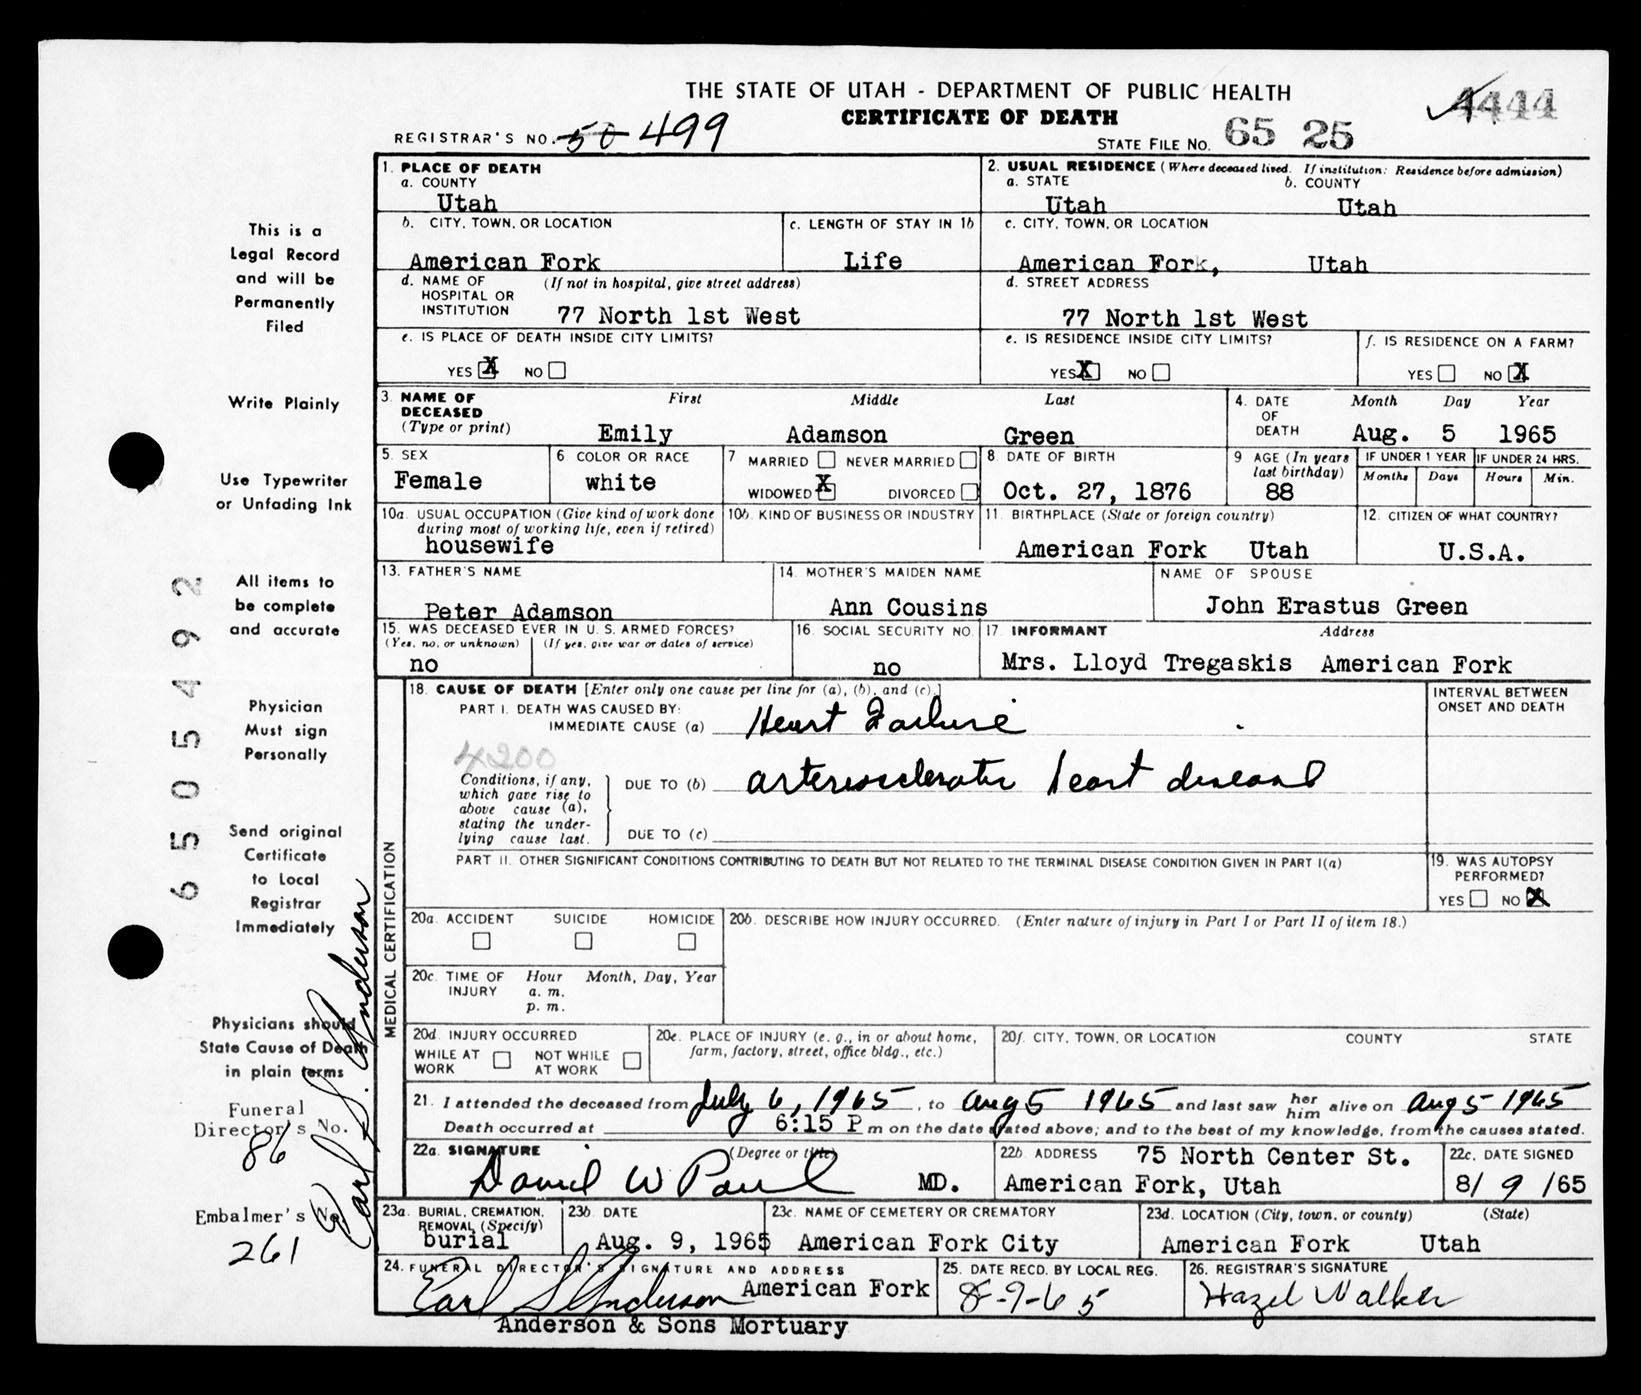 THE STATE OF UTAH - DEPARTMENT OF PUBLIC HEALTH
CERTIFICATE OF DEATH
REGISTRAR'S NO. 50 499
STATE FILE NO. 65 25 4444
This is a
Legal Record
and will be
Permanently
Filed
Write Plainly
Use Typewriter
or Unfading Ink
All items to
be complete
and accurate
Physician
Must sign
Personally
Send original
Certificate
to Local
Registrar
Immediately
Physicians should
State Cause of Death
in plain terms
Funeral
Director's No.
86
Embalmer's No.
261
Earl S. Anderson
6505492
1. PLACE OF DEATH
a. COUNTY
Utah
2. USUAL RESIDENCE (Where deceased lived. If institution: Residence before admission)
a. STATE b. COUNTY
Utah Utah
b. CITY, TOWN, OR LOCATION c. LENGTH OF STAY IN 1b
American Fork Life
c. CITY, TOWN, OR LOCATION
American Fork, Utah
d. NAME OF HOSPITAL OR INSTITUTION (If not in hospital, give street address)
77 North 1st West
d. STREET ADDRESS
77 North 1st West
e. IS PLACE OF DEATH INSIDE CITY LIMITS?
YES X NO
e. IS RESIDENCE INSIDE CITY LIMITS?
YES X NO
f. IS RESIDENCE ON A FARM?
YES NO X
3. NAME OF DECEASED (Type or print) First Middle Last
Emily Adamson Green
4. DATE OF DEATH Month Day Year
Aug. 5 1965
5. SEX
Female
6 COLOR OR RACE
white
7 MARRIED NEVER MARRIED
WIDOWED X DIVORCED
8. DATE OF BIRTH
Oct. 27, 1876
9 AGE (In years last birthday)
88
IF UNDER 1 YEAR IF UNDER 24 HRS.
Months Days Hours Min.
10a. USUAL OCCUPATION (Give kind of work done during most of working life, even if retired)
housewife
10b. KIND OF BUSINESS OR INDUSTRY
11. BIRTHPLACE (State or foreign country)
American Fork Utah
12. CITIZEN OF WHAT COUNTRY?
U.S.A.
13. FATHER'S NAME
Peter Adamson
14. MOTHER'S MAIDEN NAME
Ann Cousins
NAME OF SPOUSE
John Erastus Green
15. WAS DECEASED EVER IN U.S. ARMED FORCES?
(Yes, no, or unknown) (If yes, give war or dates of service)
no
16. SOCIAL SECURITY NO.
no
17. INFORMANT Address
Mrs. Lloyd Tregaskis American Fork
MEDICAL CERTIFICATION
18. CAUSE OF DEATH [Enter only one cause per line for (a), (b), and (c).]
PART I. DEATH WAS CAUSED BY:
IMMEDIATE CAUSE (a) Heart Failure
INTERVAL BETWEEN
ONSET AND DEATH
4200
Conditions, if any, which gave rise to above cause (a), stating the underlying cause last.
DUE TO (b) arteriosclerotic heart disease
DUE TO (c)
PART II. OTHER SIGNIFICANT CONDITIONS CONTRIBUTING TO DEATH BUT NOT RELATED TO THE TERMINAL DISEASE CONDITION GIVEN IN PART I(a)
19. WAS AUTOPSY
PERFORMED?
YES NO X
20a. ACCIDENT SUICIDE HOMICIDE
20b. DESCRIBE HOW INJURY OCCURRED. (Enter nature of injury in Part I or Part II of item 18.)
20c. TIME OF INJURY Hour Month, Day, Year
a. m.
p. m.
20d. INJURY OCCURRED
WHILE AT WORK NOT WHILE AT WORK
20e. PLACE OF INJURY (e. g., in or about home, farm, factory, street, office bldg., etc.)
20f. CITY, TOWN, OR LOCATION COUNTY STATE
21. I attended the deceased from July 6, 1965, to Aug 5 1965 and last saw her him alive on Aug 5 1965
Death occurred at 6:15 P m on the date stated above; and to the best of my knowledge, from the causes stated.
22a. SIGNATURE (Degree or title)
Daniel W Paul MD.
22b. ADDRESS 75 North Center St.
American Fork, Utah
22c. DATE SIGNED
8/ 9 /65
23a. BURIAL, CREMATION, REMOVAL (Specify)
burial
23b. DATE
Aug. 9, 1965
23c. NAME OF CEMETERY OR CREMATORY
American Fork City
23d. LOCATION (City, town, or county) (State)
American Fork Utah
24. FUNERAL DIRECTOR'S SIGNATURE AND ADDRESS
Earl S Anderson American Fork
Anderson & Sons Mortuary
25. DATE RECD. BY LOCAL REG.
8-9-65
26. REGISTRAR'S SIGNATURE
Hazel Walker